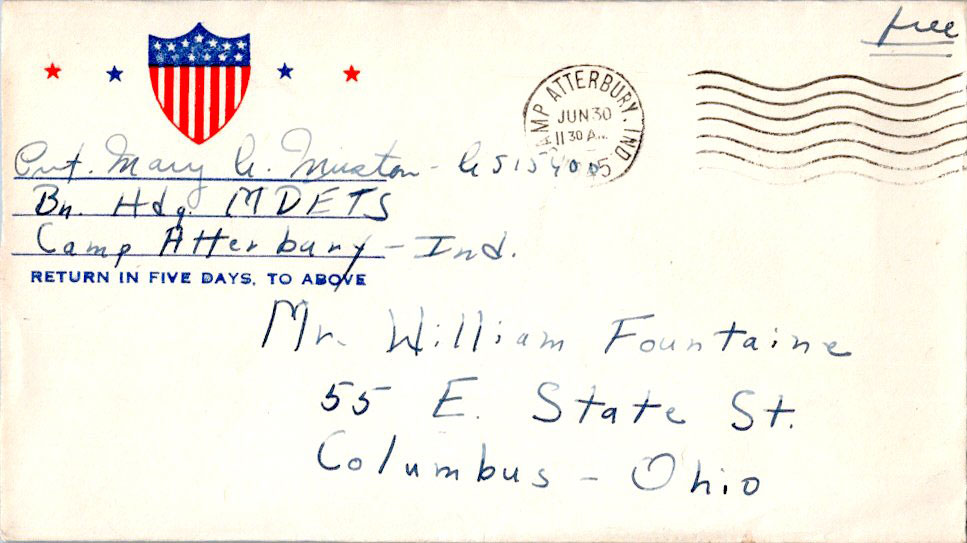 free
CAMP ATTERBURY. IND
JUN 30
11 30 A
Pvt. Mary A. Muxton - A 515400
Bn. Hdq. MDETS
Camp Atterbury - Ind.
RETURN IN FIVE DAYS, TO ABOVE
Mr. William Fountaine
55 E. State St.
Columbus - Ohio